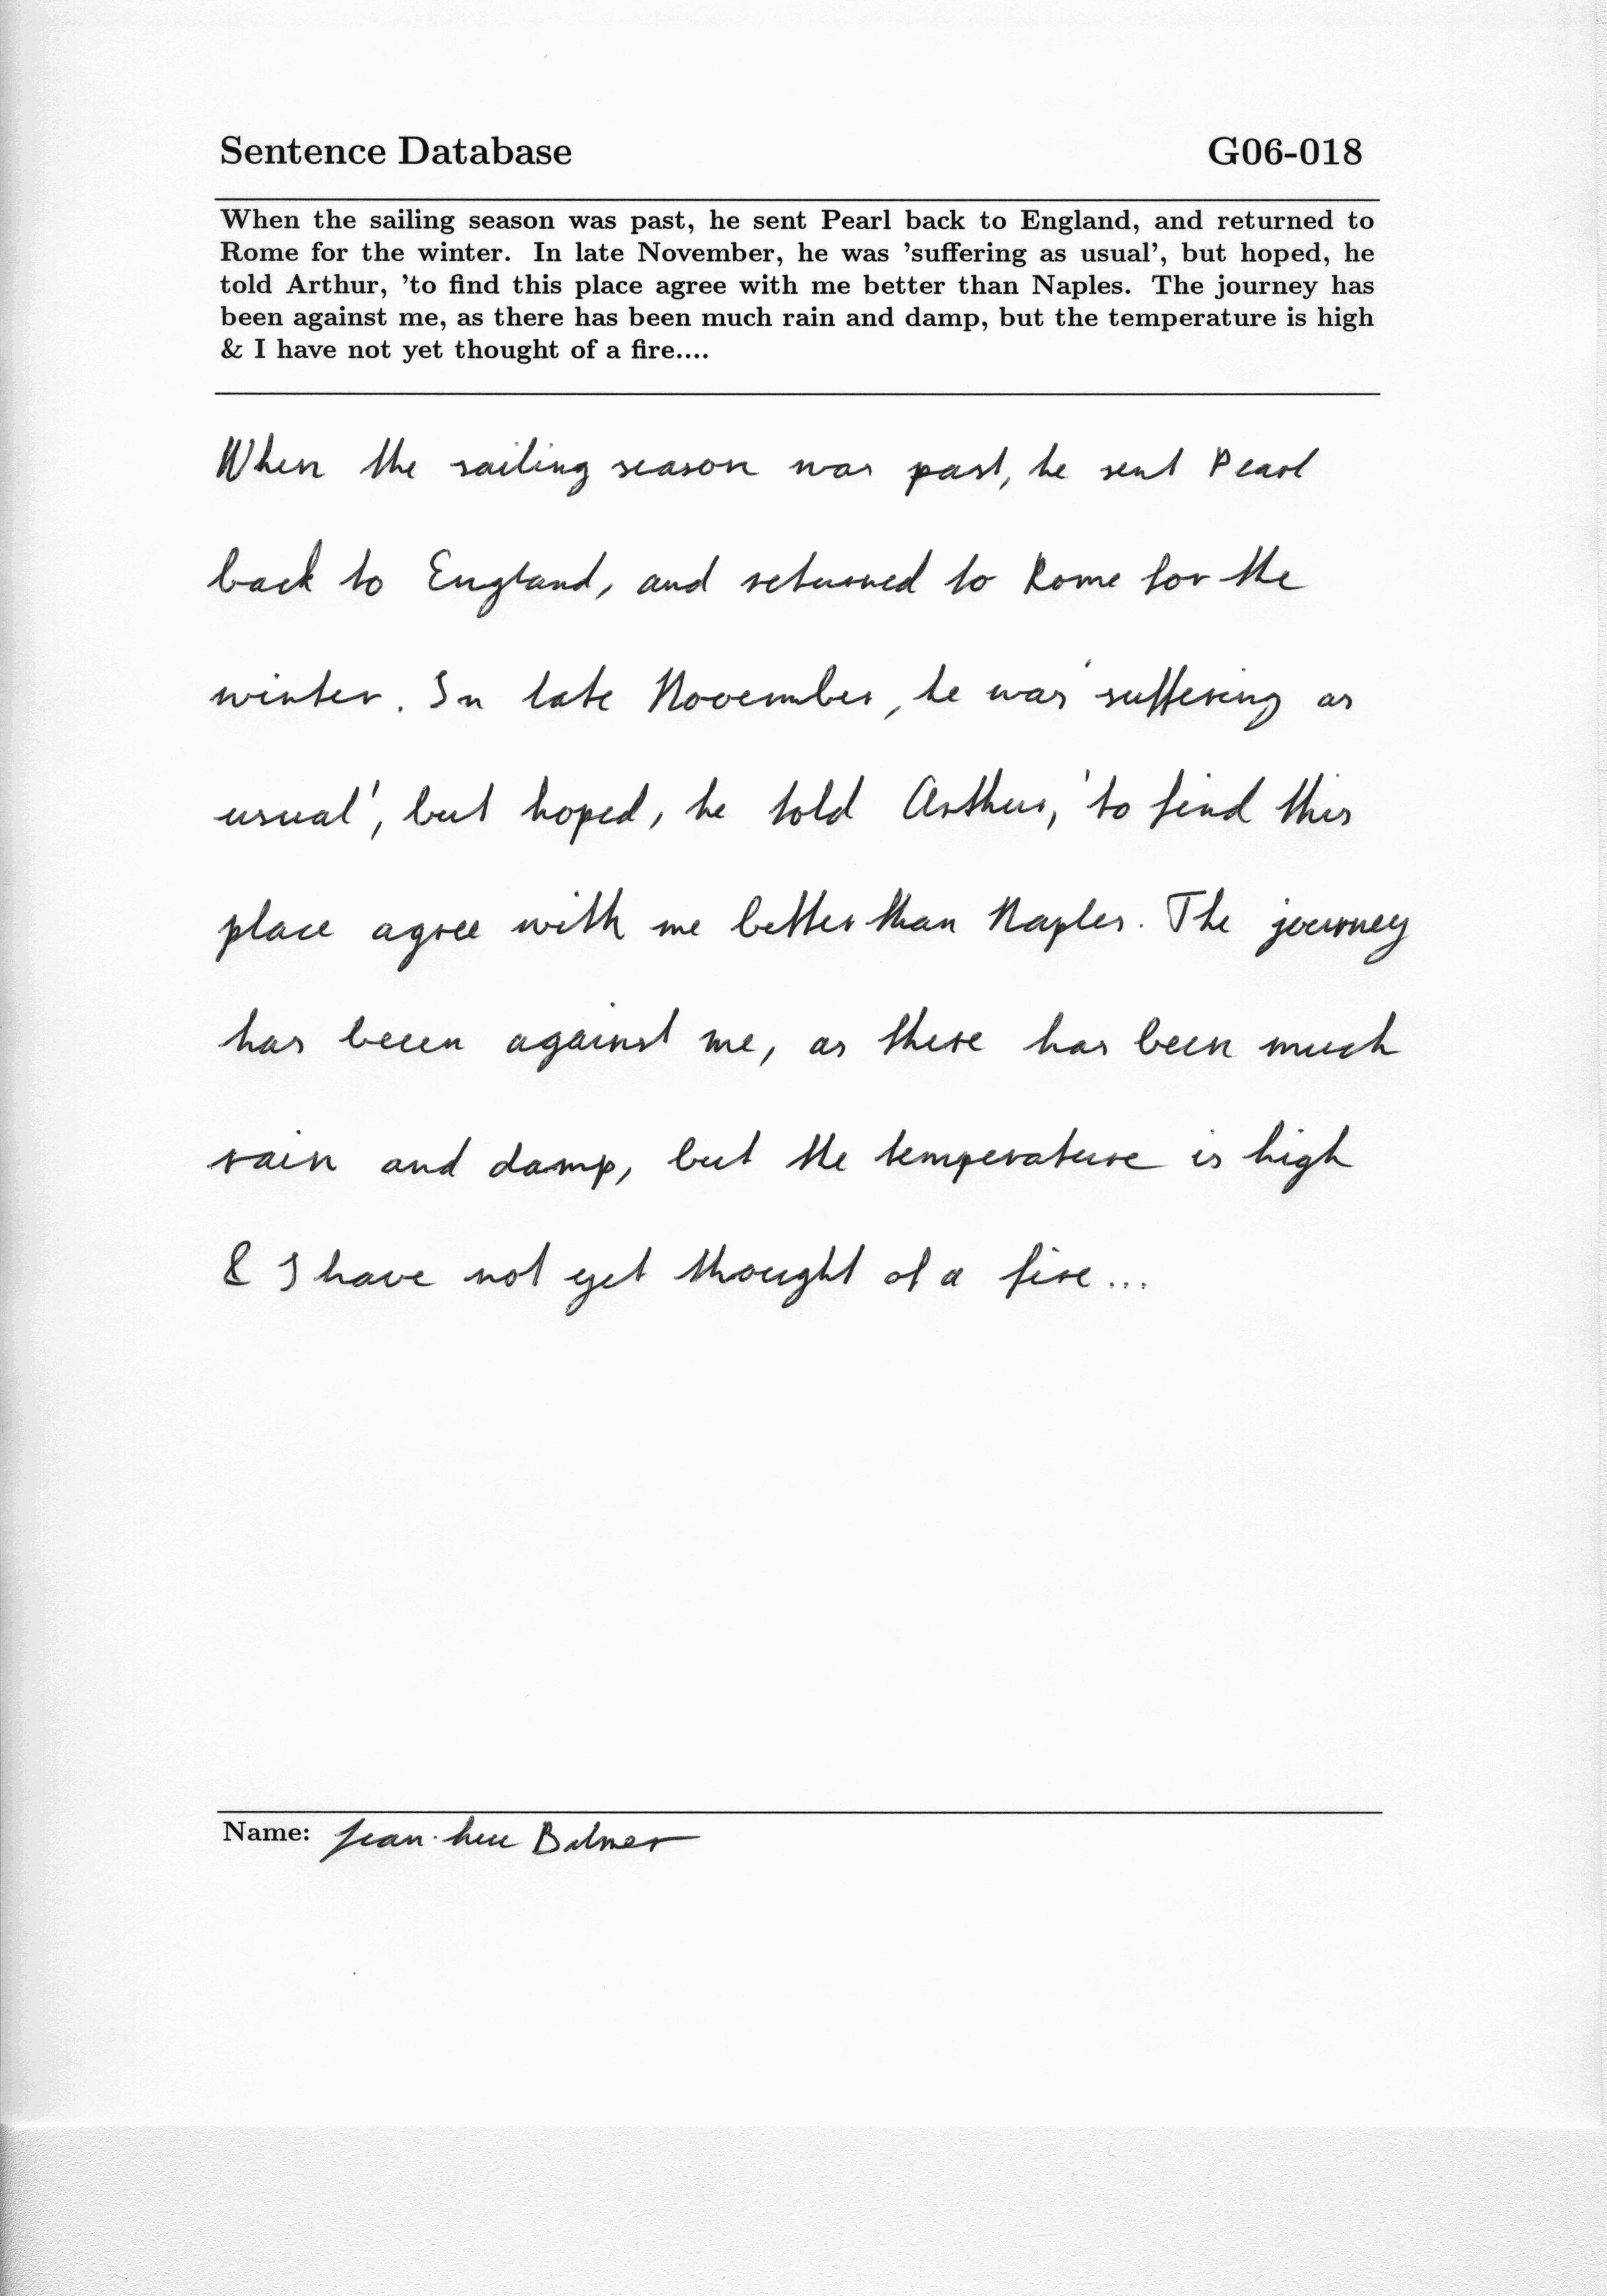 Sentence Database G06-018
When the sailing season was past, he sent Pearl back to England, and returned to
Rome for the winter. In late November, he was 'suffering as usual', but hoped, he
told Arthur, 'to find this place agree with me better than Naples. The journey has
been against me, as there has been much rain and damp, but the temperature is high
& I have not yet thought of a fire....
When the sailing season was past, he sent Pearl
back to England, and returned to Rome for the
winter. In late November, he was 'suffering as
usual', but hoped, he told Arthur, 'to find this
place agree with me better than Naples. The journey
has been against me, as there has been much
rain and damp, but the temperature is high
& I have not yet thought of a fire...
Name: Jean-